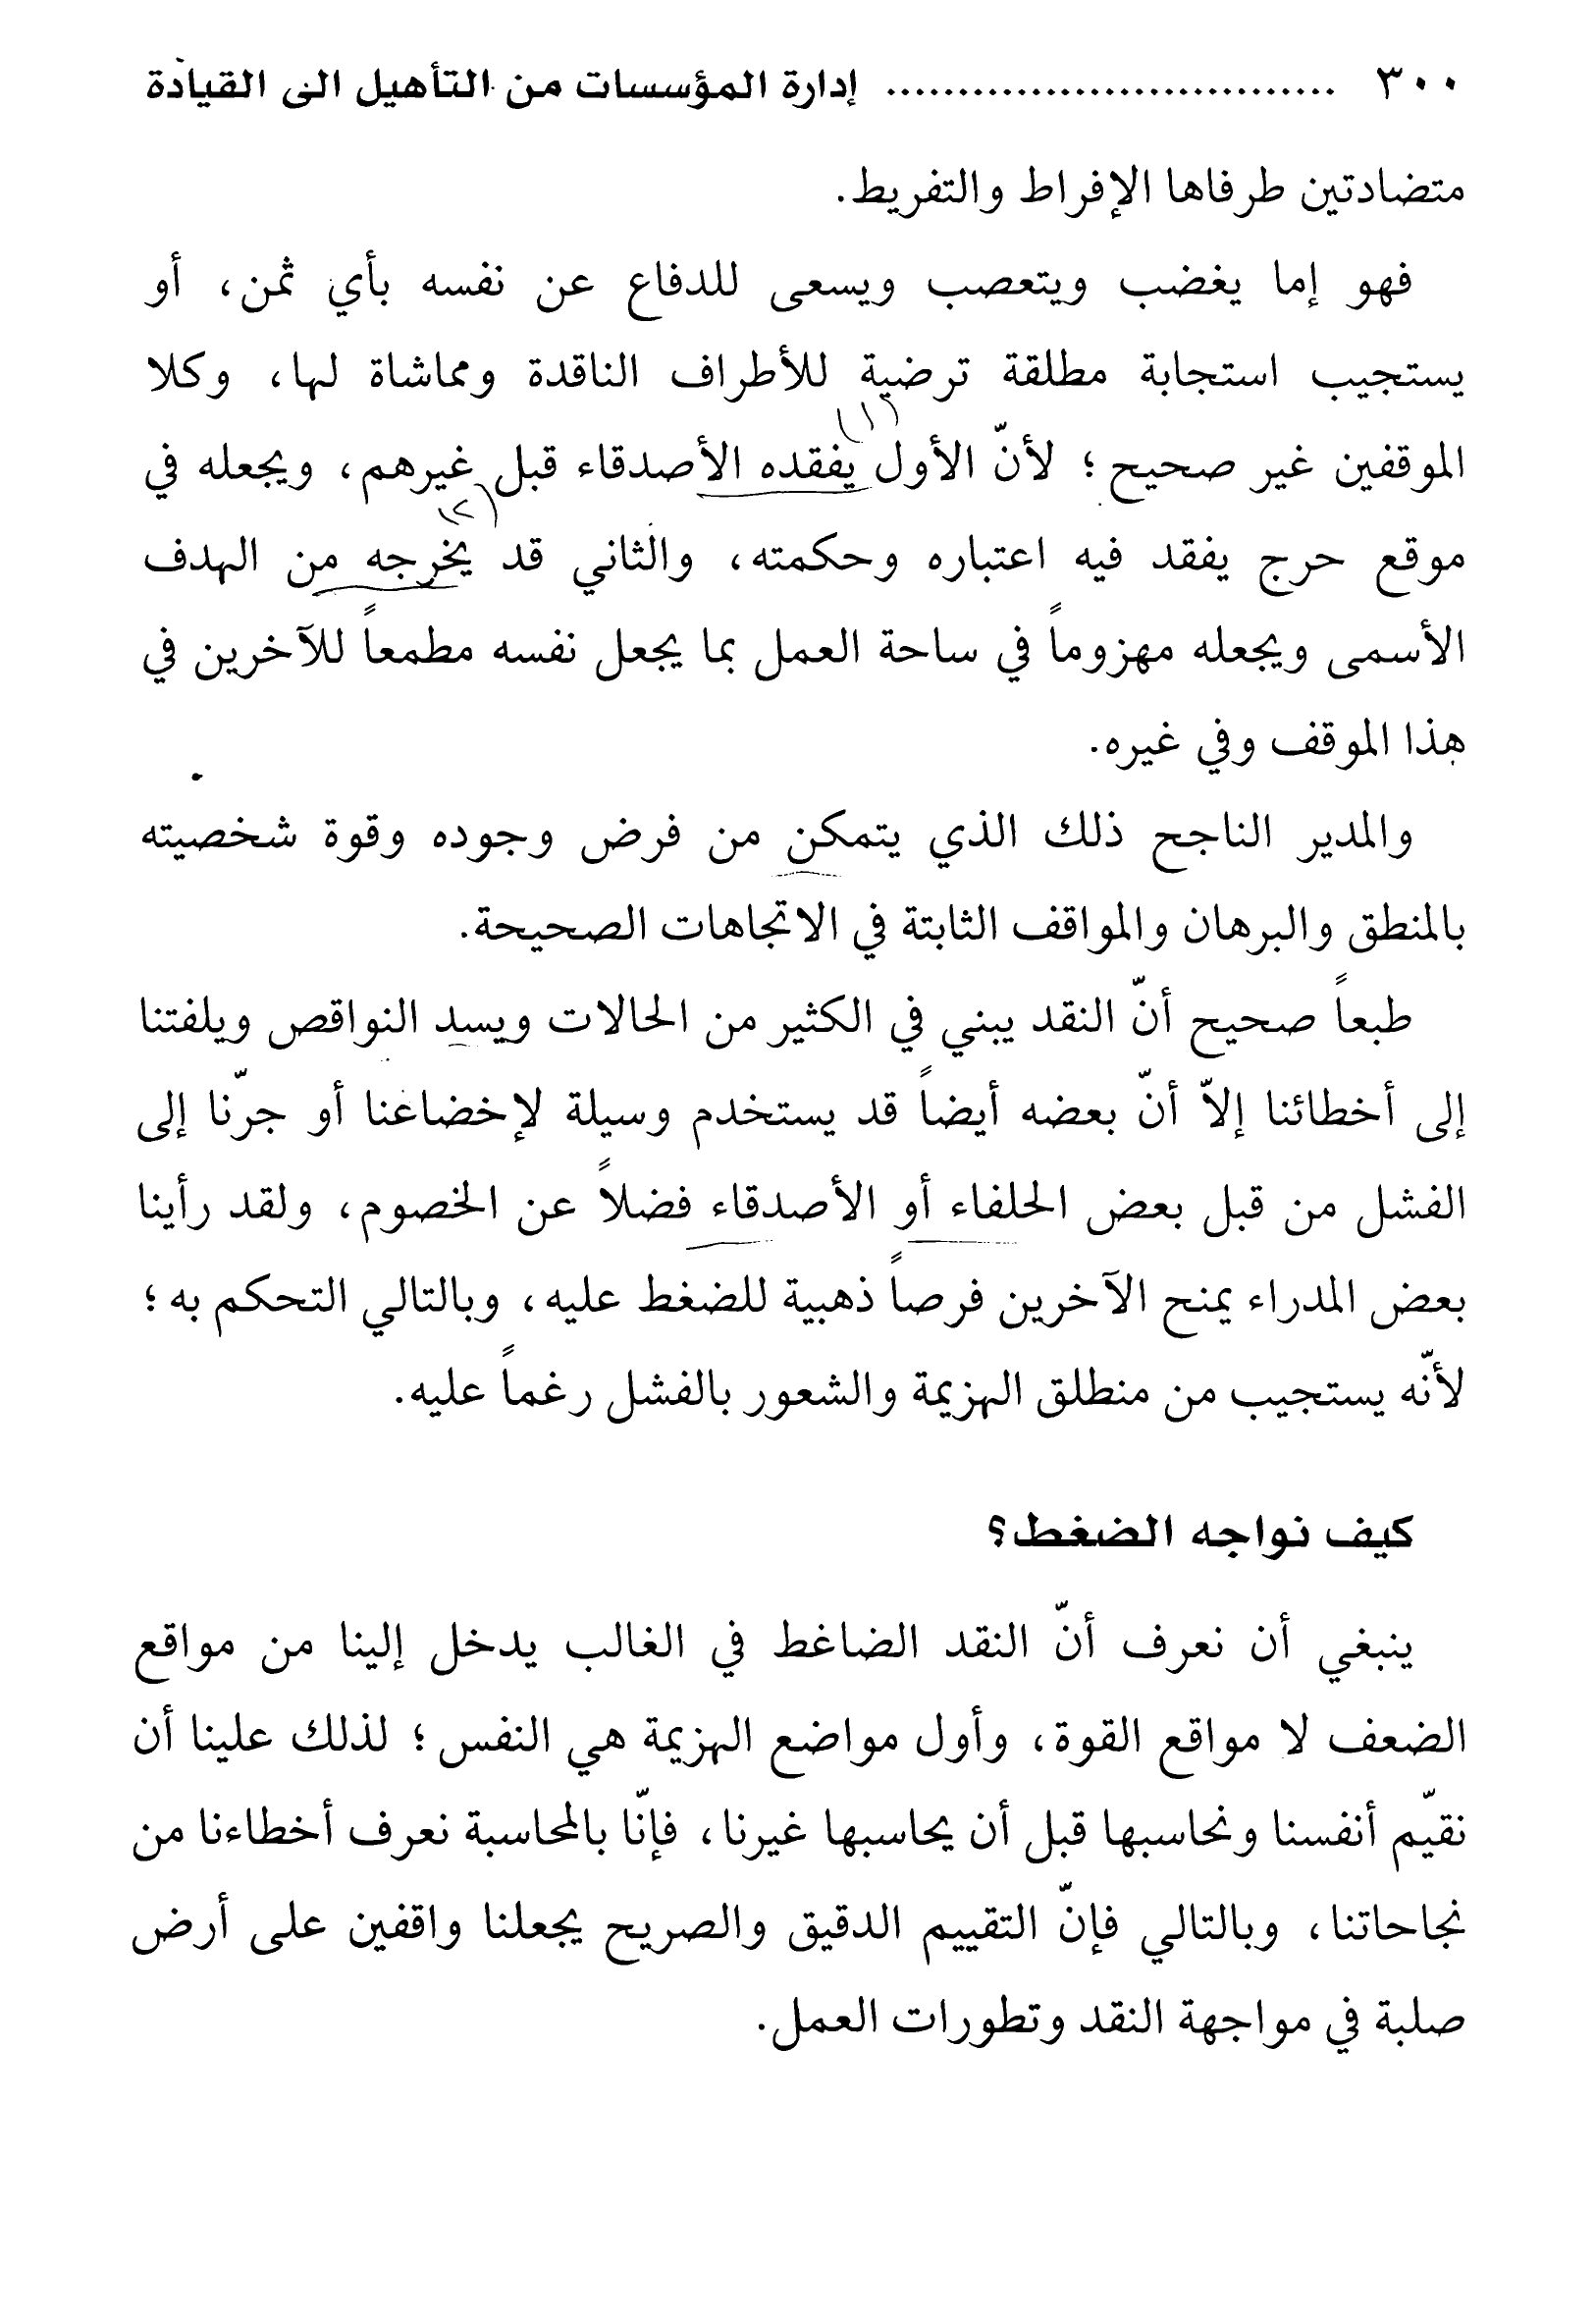 ٣٠٠ ............................... إدارة المؤسسات من التأهيل الى القيادة
متضادتين طرفاها الإفراط والتفريط.
فهو إما يغضب ويتعصب ويسعى للدفاع عن نفسه بأي ثمن، أو
يستجيب استجابة مطلقة ترضية للأطراف الناقدة ومماشاة لها، وكلا
(١)
الموقفين غير صحيح؛ لأنّ الأول يفقده الأصدقاء قبل غيرهم، ويجعله في
(٢)
موقع حرج يفقد فيه اعتباره وحكمته، والثاني قد يخرجه من الهدف
الأسمى ويجعله مهزوماً في ساحة العمل بما يجعل نفسه مطمعاً للآخرين في
هذا الموقف وفي غيره.
والمدير الناجح ذلك الذي يتمكن من فرض وجوده وقوة شخصيته
بالمنطق والبرهان والمواقف الثابتة في الاتجاهات الصحيحة.
طبعاً صحيح أنّ النقد يبني في الكثير من الحالات ويسد النواقص ويلفتنا
إلى أخطائنا إلاّ أنّ بعضه أيضاً قد يستخدم وسيلة لإخضاعنا أو جرّنا إلى
الفشل من قبل بعض الحلفاء أو الأصدقاء فضلاً عن الخصوم، ولقد رأينا
بعض المدراء يمنح الآخرين فرصاً ذهبية للضغط عليه، وبالتالي التحكم به؛
لأنّه يستجيب من منطلق الهزيمة والشعور بالفشل رغماً عليه.
كيف نواجه الضغط؟
ينبغي أن نعرف أنّ النقد الضاغط في الغالب يدخل إلينا من مواقع
الضعف لا مواقع القوة، وأول مواضع الهزيمة هي النفس؛ لذلك علينا أن
نقيّم أنفسنا ونحاسبها قبل أن يحاسبها غيرنا، فإنّا بالمحاسبة نعرف أخطاءنا من
نجاحاتنا، وبالتالي فإنّ التقييم الدقيق والصريح يجعلنا واقفين على أرض
صلبة في مواجهة النقد وتطورات العمل.